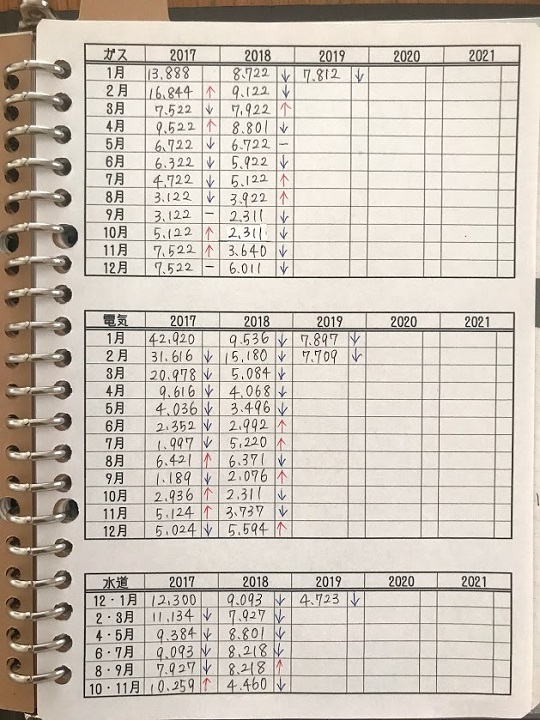 ガス 2017 2018 2019 2020 2021
1月 13.888 8.722 ↓ 7.812 ↓
2月 16.844 ↑ 9.122 ↓
3月 7.522 ↓ 7.922 ↑
4月 9.522 ↑ 8.801 ↓
5月 6.722 ↓ 6.722 −
6月 6.322 ↓ 5.922 ↓
7月 4.722 ↓ 5.122 ↑
8月 3.122 ↓ 3.922 ↑
9月 3.122 − 2.311 ↓
10月 5.122 ↑ 2.311 ↓
11月 7.522 ↑ 3.640 ↓
12月 7.522 − 6.011 ↓
電気 2017 2018 2019 2020 2021
1月 42.920 9.536 ↓ 7.897 ↓
2月 31.616 ↓ 15.180 ↓ 7.709 ↓
3月 20.978 ↓ 5.084 ↓
4月 9.616 ↓ 4.068 ↓
5月 4.036 ↓ 3.496 ↓
6月 2.352 ↓ 2.992 ↑
7月 1.997 ↓ 5.220 ↑
8月 6.421 ↑ 6.371 ↓
9月 1.189 ↓ 2.076 ↑
10月 2.936 ↑ 2.311 ↓
11月 5.124 ↑ 3.737 ↓
12月 5.024 ↓ 5.594 ↑
水道 2017 2018 2019 2020 2021
12・1月 12.300 9.093 ↓ 4.723 ↓
2・3月 11.134 ↓ 7.927 ↓
4・5月 9.384 ↓ 8.801 ↓
6・7月 9.093 ↓ 8.218 ↓
8・9月 7.927 ↓ 8.218 ↑
10・11月 10.259 ↑ 4.460 ↓